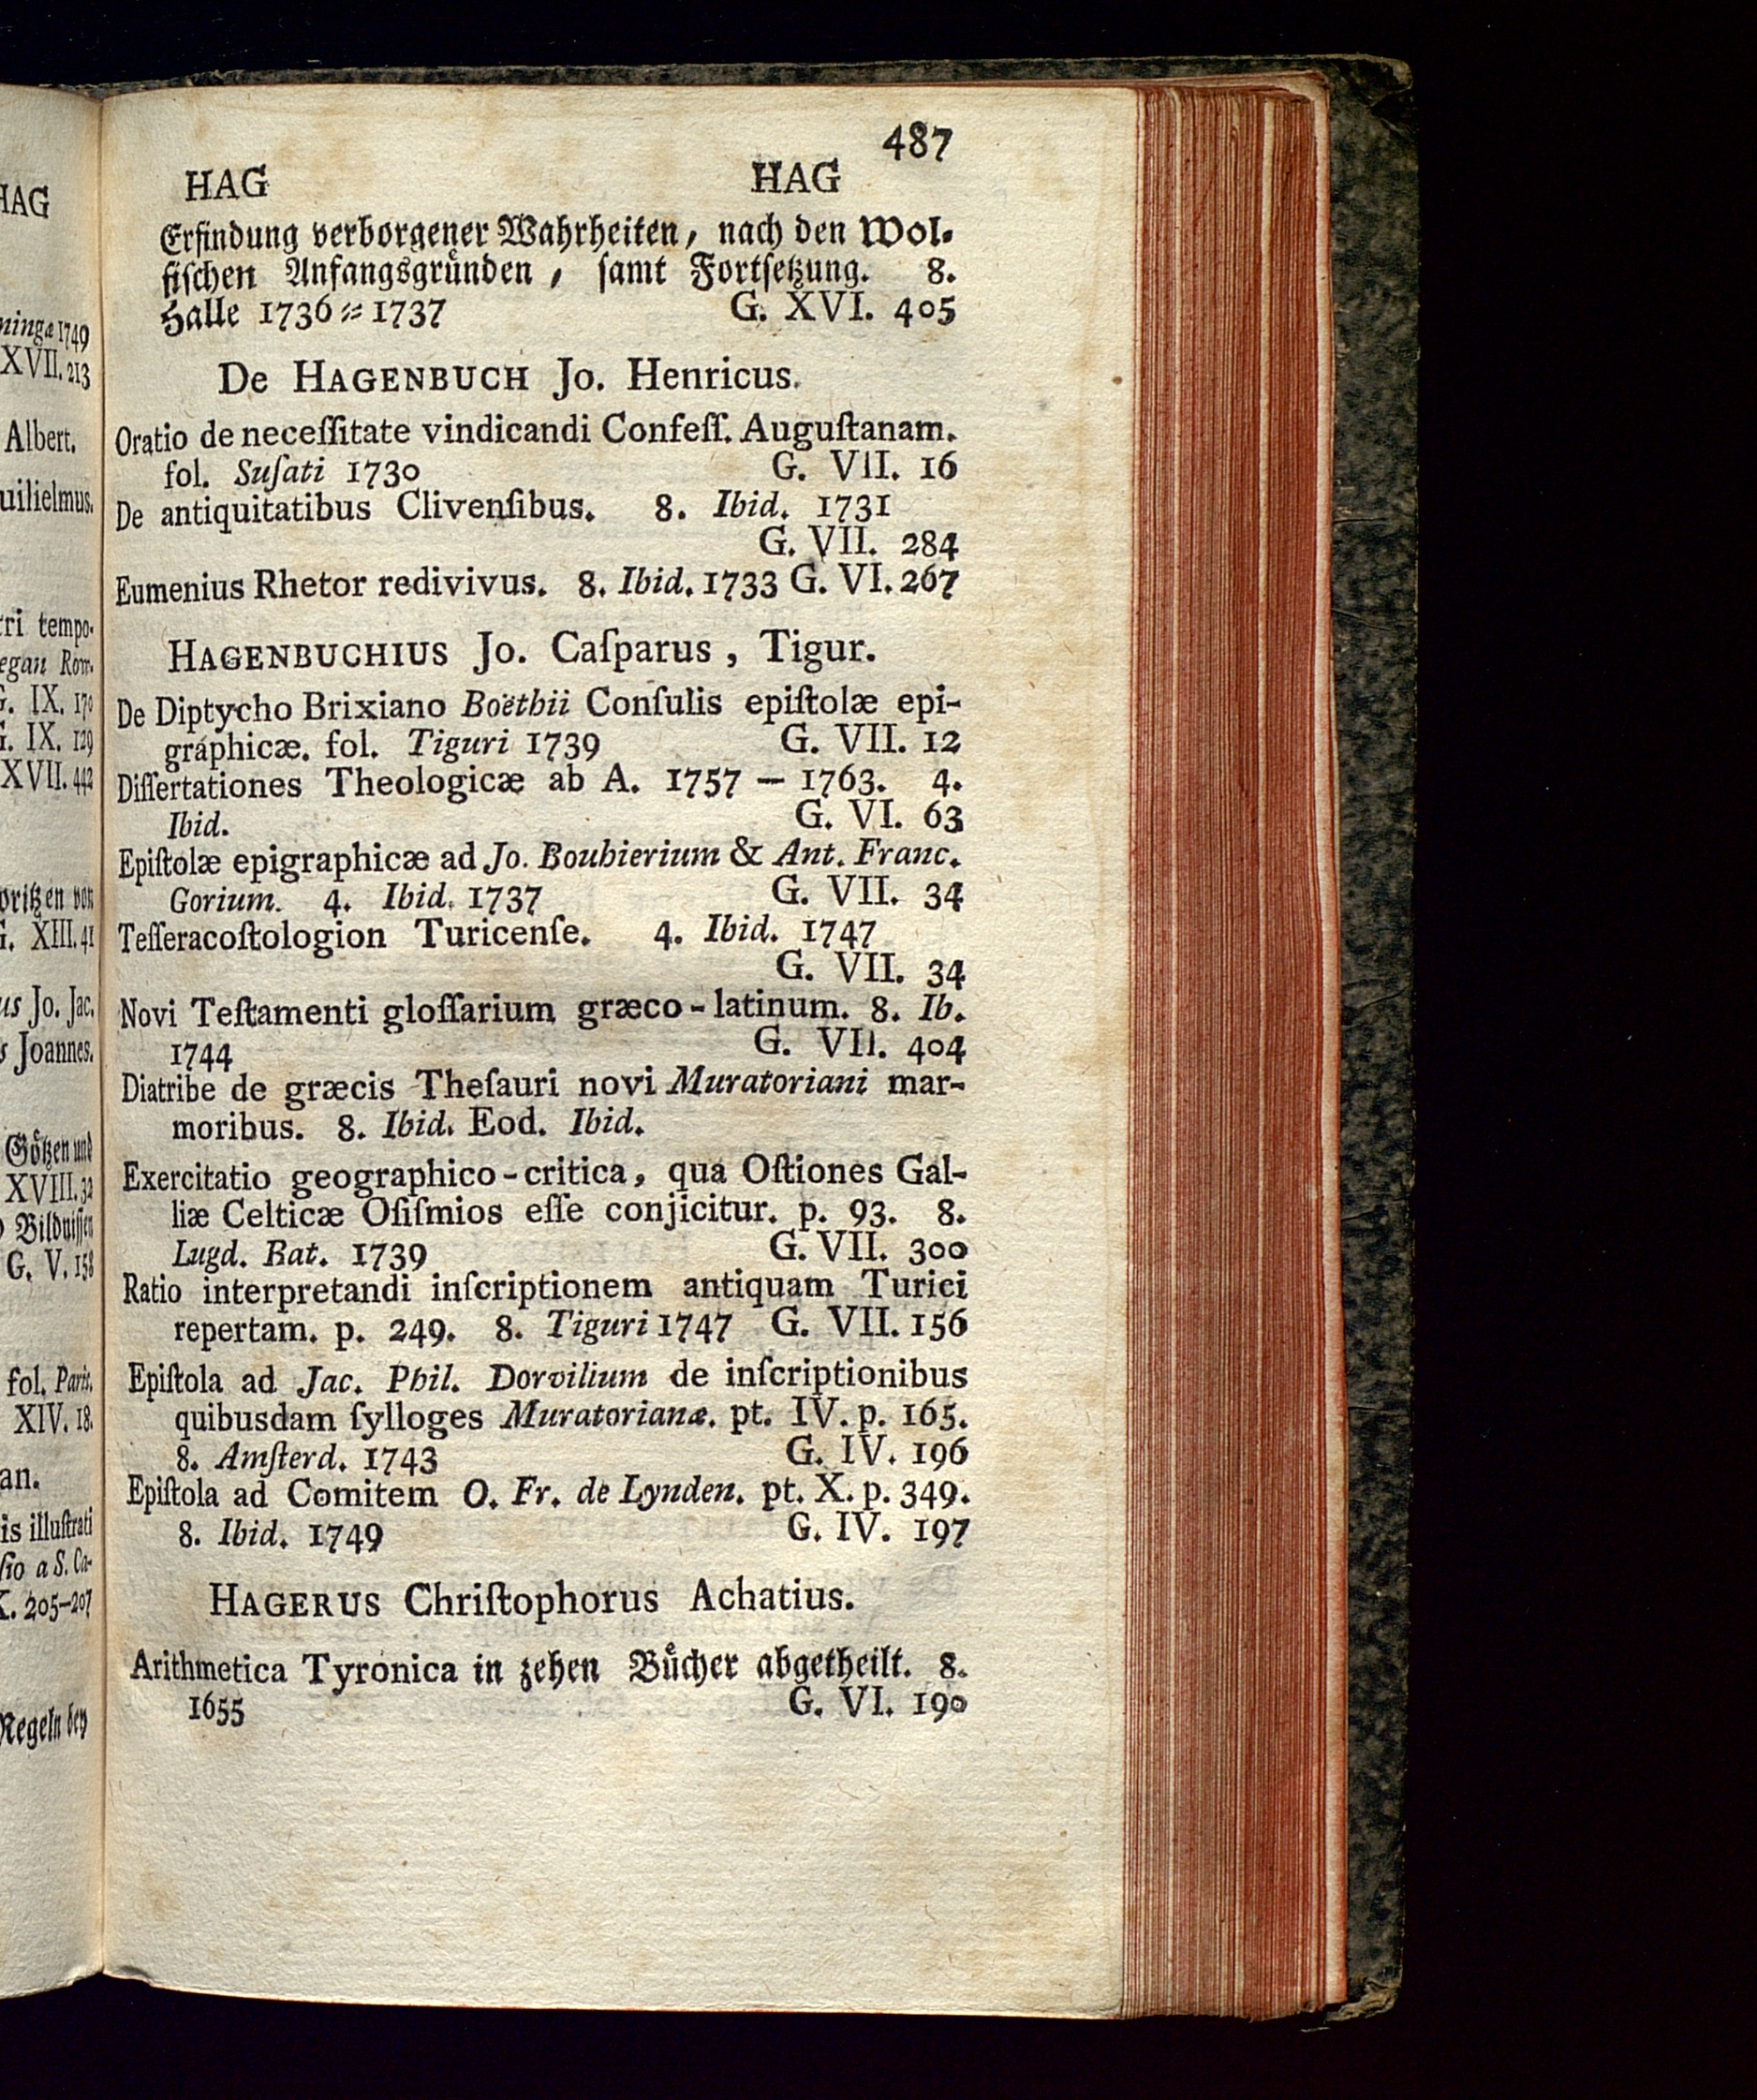 HAG
ningæ 1749
XVII. 213
Albert.
uilielmus.
tri tempo-
egan Rom.
G. IX. 170
G. IX. 129
XVII. 442
oritzen von
G. XIII. 41
us Jo. Jac.
s Joannes.
Götzen und
XVIII. 32
Bildnissen
G. V. 158
fol. Paris.
XIV. 18.
an.
is illuſtrati
ſio a S. Ca-
X. 205-207
Regeln bey
487
HAG HAG
Erfindung verborgener Wahrheiten, nach den Wol-
fiſchen Anfangsgründen, ſamt Fortſetzung. 8.
Halle 1736 = 1737 G. XVI. 405
De HAGENBUCH Jo. Henricus.
Oratio de neceſſitate vindicandi Confeſſ. Auguſtanam.
fol. Suſati 1730 G. VII. 16
De antiquitatibus Clivenſibus. 8. Ibid. 1731
G. VII. 284
Eumenius Rhetor redivivus. 8. Ibid. 1733 G. VI. 267
HAGENBUCHIUS Jo. Caſparus, Tigur.
De Diptycho Brixiano Boëthii Conſulis epiſtolæ epi-
graphicæ. fol. Tiguri 1739 G. VII. 12
Diſſertationes Theologicæ ab A. 1757 — 1763. 4.
Ibid. G. VI. 63
Epiſtolæ epigraphicæ ad Jo. Bouhierium & Ant. Franc.
Gorium. 4. Ibid. 1737 G. VII. 34
Teſſeracoſtologion Turicenſe. 4. Ibid. 1747
G. VII. 34
Novi Teſtamenti gloſſarium græco-latinum. 8. Ib.
1744 G. VII. 404
Diatribe de græcis Theſauri novi Muratoriani mar-
moribus. 8. Ibid. Eod. Ibid.
Exercitatio geographico-critica, qua Oſtiones Gal-
liæ Celticæ Oſiſmios eſſe conjicitur. p. 93. 8.
Lugd. Bat. 1739 G. VII. 300
Ratio interpretandi inſcriptionem antiquam Turici
repertam. p. 249. 8. Tiguri 1747 G. VII. 156
Epiſtola ad Jac. Phil. Dorvilium de inſcriptionibus
quibusdam ſylloges Muratorianæ. pt. IV. p. 165.
8. Amſterd. 1743 G. IV. 196
Epiſtola ad Comitem O. Fr. de Lynden. pt. X. p. 349.
8. Ibid. 1749 G. IV. 197
HAGERUS Chriſtophorus Achatius.
Arithmetica Tyronica in zehen Bücher abgetheilt. 8.
1655 G. VI. 190